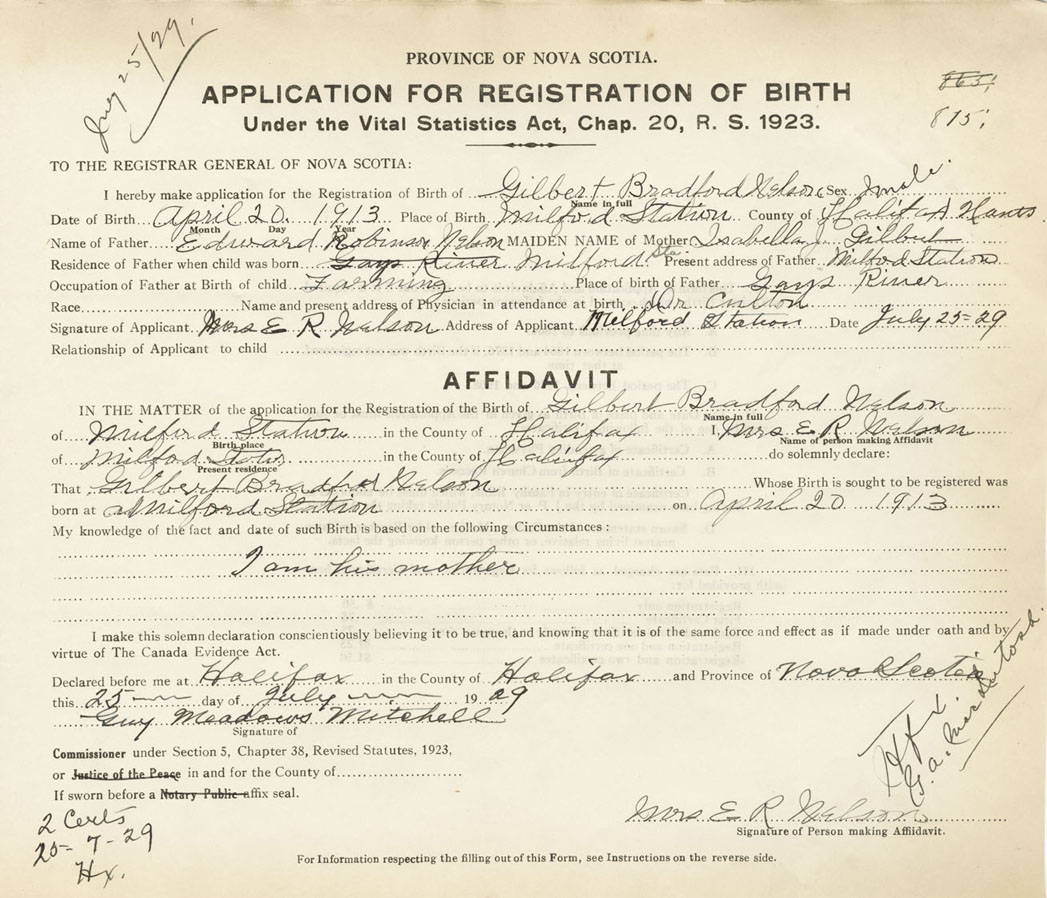 July 25/29.
PROVINCE OF NOVA SCOTIA.
865;
APPLICATION FOR REGISTRATION OF BIRTH
815;
Under the Vital Statistics Act, Chap. 20, R. S. 1923.
TO THE REGISTRAR GENERAL OF NOVA SCOTIA:
I hereby make application for the Registration of Birth of Gilbert Bradford Nelson Sex male
Name in full
Date of Birth April 20. 1913 Place of Birth Milford Station County of Halifax Hants
Month Day Year
Name of Father Edward Robinson Nelson MAIDEN NAME of Mother Isabella J. Gilbert
Residence of Father when child was born Gays River Milford Sta Present address of Father Milford Station
Occupation of Father at Birth of child Farming Place of birth of Father Gays River
Race Name and present address of Physician in attendance at birth Dr
Signature of Applicant Mrs E R Nelson Address of Applicant Milford Station Date July 25-29
Relationship of Applicant to child
AFFIDAVIT
IN THE MATTER of the application for the Registration of the Birth of Gilbert Bradford Nelson
Name in full
of Milford Station in the County of Halifax I, Mrs E. R. Nelson
Birth place Name of person making Affidavit
of Milford Station in the County of Halifax do solemnly declare:
Present residence
That Gilbert Bradford Nelson Whose Birth is sought to be registered was
born at Milford Station on April 20 1913
My knowledge of the fact and date of such Birth is based on the following Circumstances :
I am his mother
I make this solemn declaration conscientiously believing it to be true, and knowing that it is of the same force and effect as if made under oath and by
virtue of The Canada Evidence Act.
Declared before me at Halifax in the County of Halifax and Province of Nova Scotia
this 25 day of July 1929
Guy Meadows Mitchell
Signature of
Commissioner under Section 5, Chapter 38, Revised Statutes, 1923,
or Justice of the Peace in and for the County of
If sworn before a Notary Public affix seal.
2 Certs
25-7-29
Hx.
Hfx
G. A.
Mrs. E. R. Nelson
Signature of Person making Affidavit.
For Information respecting the filling out of this Form, see Instructions on the reverse side.